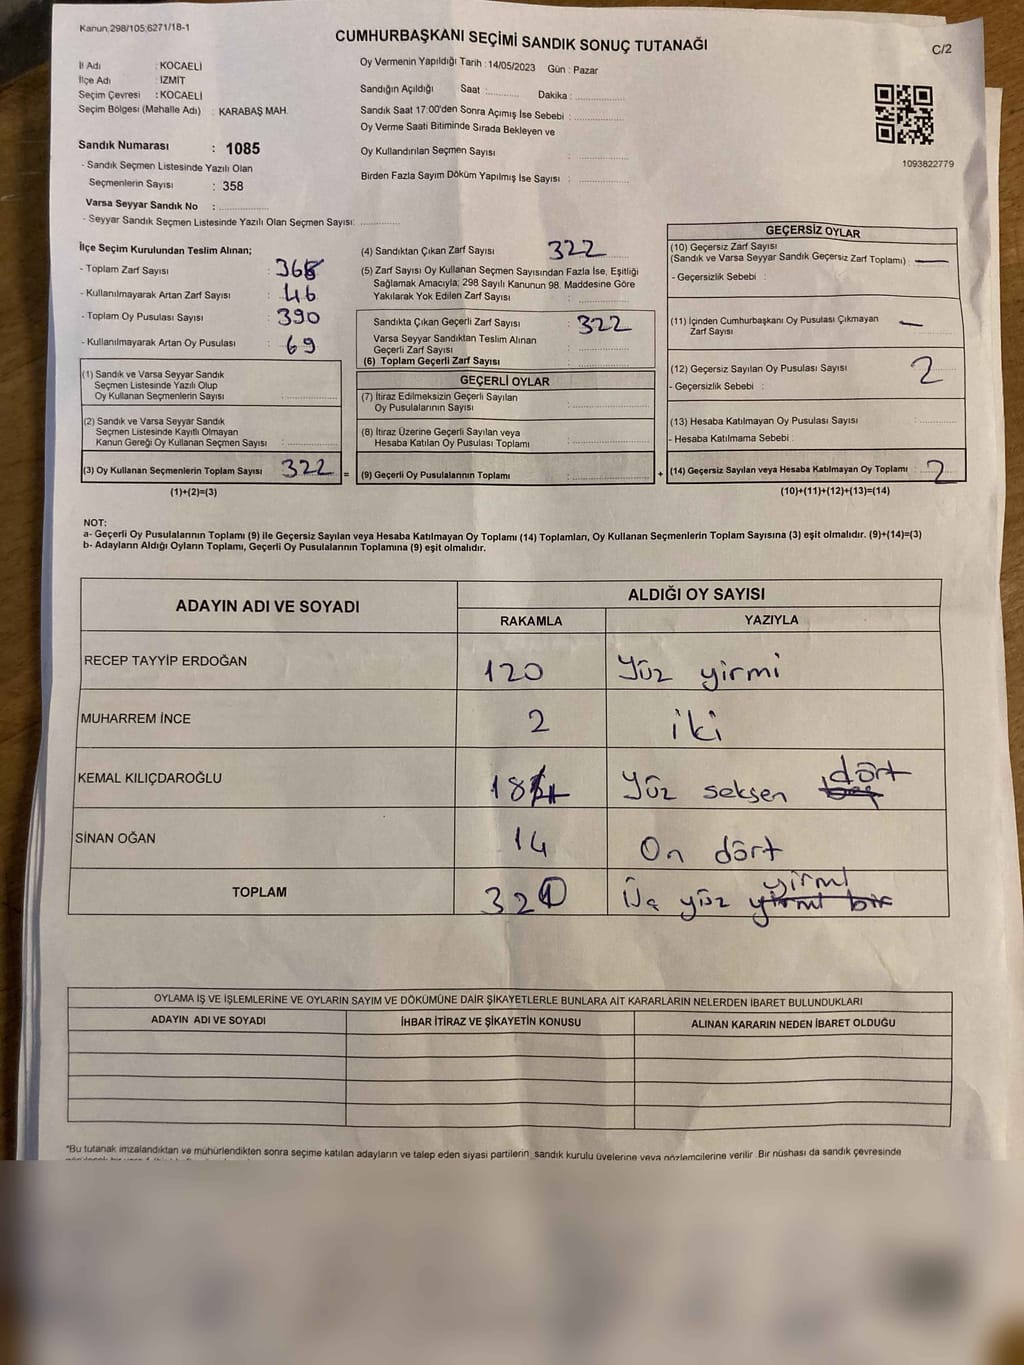 Kanun,298/105;6271/18-1
CUMHURBAŞKANI SEÇİMİ SANDIK SONUÇ TUTANAĞI
C/2
İl Adı : KOCAELİ
İlçe Adı : İZMİT
Seçim Çevresi : KOCAELİ
Seçim Bölgesi (Mahalle Adı) : KARABAŞ MAH.
Sandık Numarası : 1085
- Sandık Seçmen Listesinde Yazılı Olan
Seçmenlerin Sayısı : 358
Varsa Seyyar Sandık No :
- Seyyar Sandık Seçmen Listesinde Yazılı Olan Seçmen Sayısı:
Oy Vermenin Yapıldığı Tarih : 14/05/2023 Gün : Pazar
Sandığın Açıldığı Saat : Dakika :
Sandık Saat 17:00'den Sonra Açımış İse Sebebi :
Oy Verme Saati Bitiminde Sırada Bekleyen ve
Oy Kullandırılan Seçmen Sayısı :
Birden Fazla Sayım Döküm Yapılmış İse Sayısı :
1093822779
İlçe Seçim Kurulundan Teslim Alınan;
- Toplam Zarf Sayısı : 368
- Kullanılmayarak Artan Zarf Sayısı : 46
- Toplam Oy Pusulası Sayısı : 390
- Kullanılmayarak Artan Oy Pusulası : 69
(1) Sandık ve Varsa Seyyar Sandık
Seçmen Listesinde Yazılı Olup
Oy Kullanan Seçmenlerin Sayısı :
(2) Sandık ve Varsa Seyyar Sandık
Seçmen Listesinde Kayıtlı Olmayan
Kanun Gereği Oy Kullanan Seçmen Sayısı :
(3) Oy Kullanan Seçmenlerin Toplam Sayısı 322 =
(1)+(2)=(3)
(4) Sandıktan Çıkan Zarf Sayısı 322
(5) Zarf Sayısı Oy Kullanan Seçmen Sayısından Fazla İse, Eşitliği
Sağlamak Amacıyla; 298 Sayılı Kanunun 98. Maddesine Göre
Yakılarak Yok Edilen Zarf Sayısı :
Sandıkta Çıkan Geçerli Zarf Sayısı : 322
Varsa Seyyar Sandıktan Teslim Alınan
Geçerli Zarf Sayısı :
(6) Toplam Geçerli Zarf Sayısı :
GEÇERLİ OYLAR
(7) İtiraz Edilmeksizin Geçerli Sayılan
Oy Pusulalarının Sayısı :
(8) İtiraz Üzerine Geçerli Sayılan veya
Hesaba Katılan Oy Pusulası Toplamı :
(9) Geçerli Oy Pusulalarının Toplamı : +
GEÇERSİZ OYLAR
(10) Geçersiz Zarf Sayısı
(Sandık ve Varsa Seyyar Sandık Geçersiz Zarf Toplamı) : —
- Geçersizlik Sebebi :
(11) İçinden Cumhurbaşkanı Oy Pusulası Çıkmayan
Zarf Sayısı : —
(12) Geçersiz Sayılan Oy Pusulası Sayısı : 2
- Geçersizlik Sebebi :
(13) Hesaba Katılmayan Oy Pusulası Sayısı :
- Hesaba Katılmama Sebebi :
(14) Geçersiz Sayılan veya Hesaba Katılmayan Oy Toplamı : 2
(10)+(11)+(12)+(13)=(14)
NOT:
a- Geçerli Oy Pusulalarının Toplamı (9) ile Geçersiz Sayılan veya Hesaba Katılmayan Oy Toplamı (14) Toplamları, Oy Kullanan Seçmenlerin Toplam Sayısına (3) eşit olmalıdır. (9)+(14)=(3)
b- Adayların Aldığı Oyların Toplamı, Geçerli Oy Pusulalarının Toplamına (9) eşit olmalıdır.
ADAYIN ADI VE SOYADI ALDIĞI OY SAYISI
RAKAMLA YAZIYLA
RECEP TAYYİP ERDOĞAN 120 Yüz yirmi
MUHARREM İNCE 2 iki
KEMAL KILIÇDAROĞLU 184 Yüz seksen beş dört
SİNAN OĞAN 14 On dört
TOPLAM 320 Üç yüz yirmi bir yirmi
OYLAMA İŞ VE İŞLEMLERİNE VE OYLARIN SAYIM VE DÖKÜMÜNE DAİR ŞİKAYETLERLE BUNLARA AİT KARARLARIN NELERDEN İBARET BULUNDUKLARI
ADAYIN ADI VE SOYADI İHBAR İTİRAZ VE ŞİKAYETİN KONUSU ALINAN KARARIN NEDEN İBARET OLDUĞU
*Bu tutanak imzalandıktan ve mühürlendikten sonra seçime katılan adayların ve talep eden siyasi partilerin sandık kurulu üyelerine veya gözlemcilerine verilir Bir nüshası da sandık çevresinde